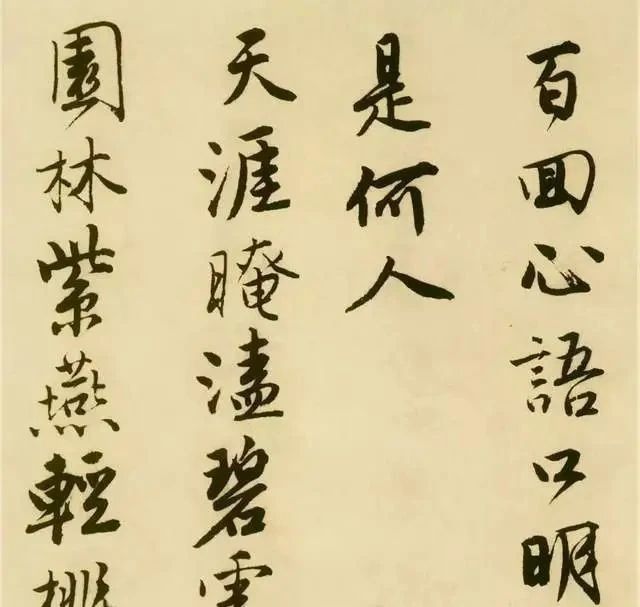 百回心語口明
是何人
天涯晻溘碧雲
園林紫燕輕